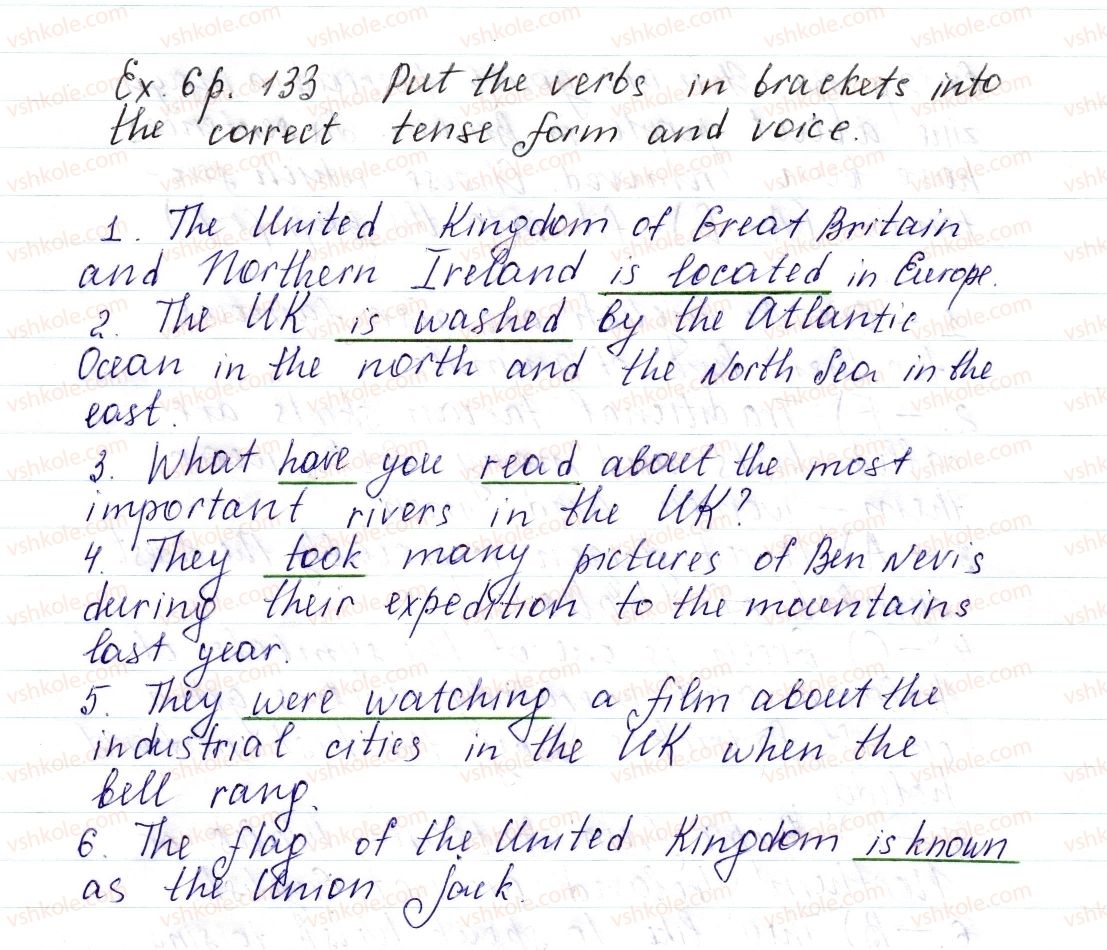 Ex. 6 p. 133 Put the verbs in brackets into
the correct tense form and voice.
1. The United Kingdom of Great Britain
and Northern Ireland is located in Europe.
2. The UK is washed by the Atlantic
Ocean in the north and the North Sea in the
east.
3. What have you read about the most
important rivers in the UK?
4. They took many pictures of Ben Nevis
during their expedition to the mountains
last year.
5. They were watching a film about the
industrial cities in the UK when the
bell rang.
6. The flag of the United Kingdom is known
as the Union Jack.
vshkole.com